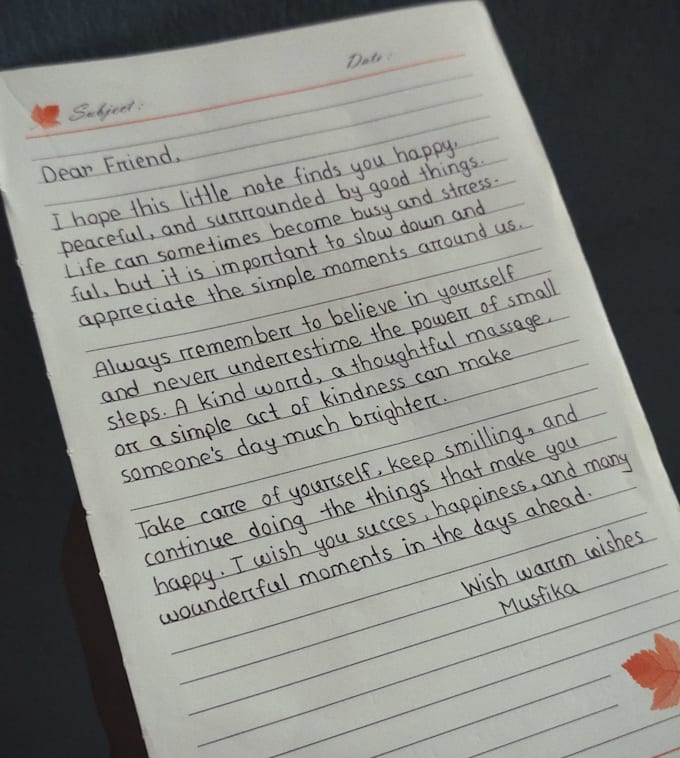 Date:
Subject:
Dear Friend,
I hope this little note finds you happy,
peaceful, and surrounded by good things.
Life can sometimes become busy and stress-
ful, but it is important to slow down and
appreciate the simple moments around us.
Always remember to believe in yourself
and never underestime the power of small
steps. A kind word, a thoughtful massage,
or a simple act of kindness can make
someone's day much brighter.
Take care of yourself, keep smilling, and
continue doing the things that make you
happy. I wish you succes, happiness, and many
wounderful moments in the days ahead.
Wish warm wishes
Musfika